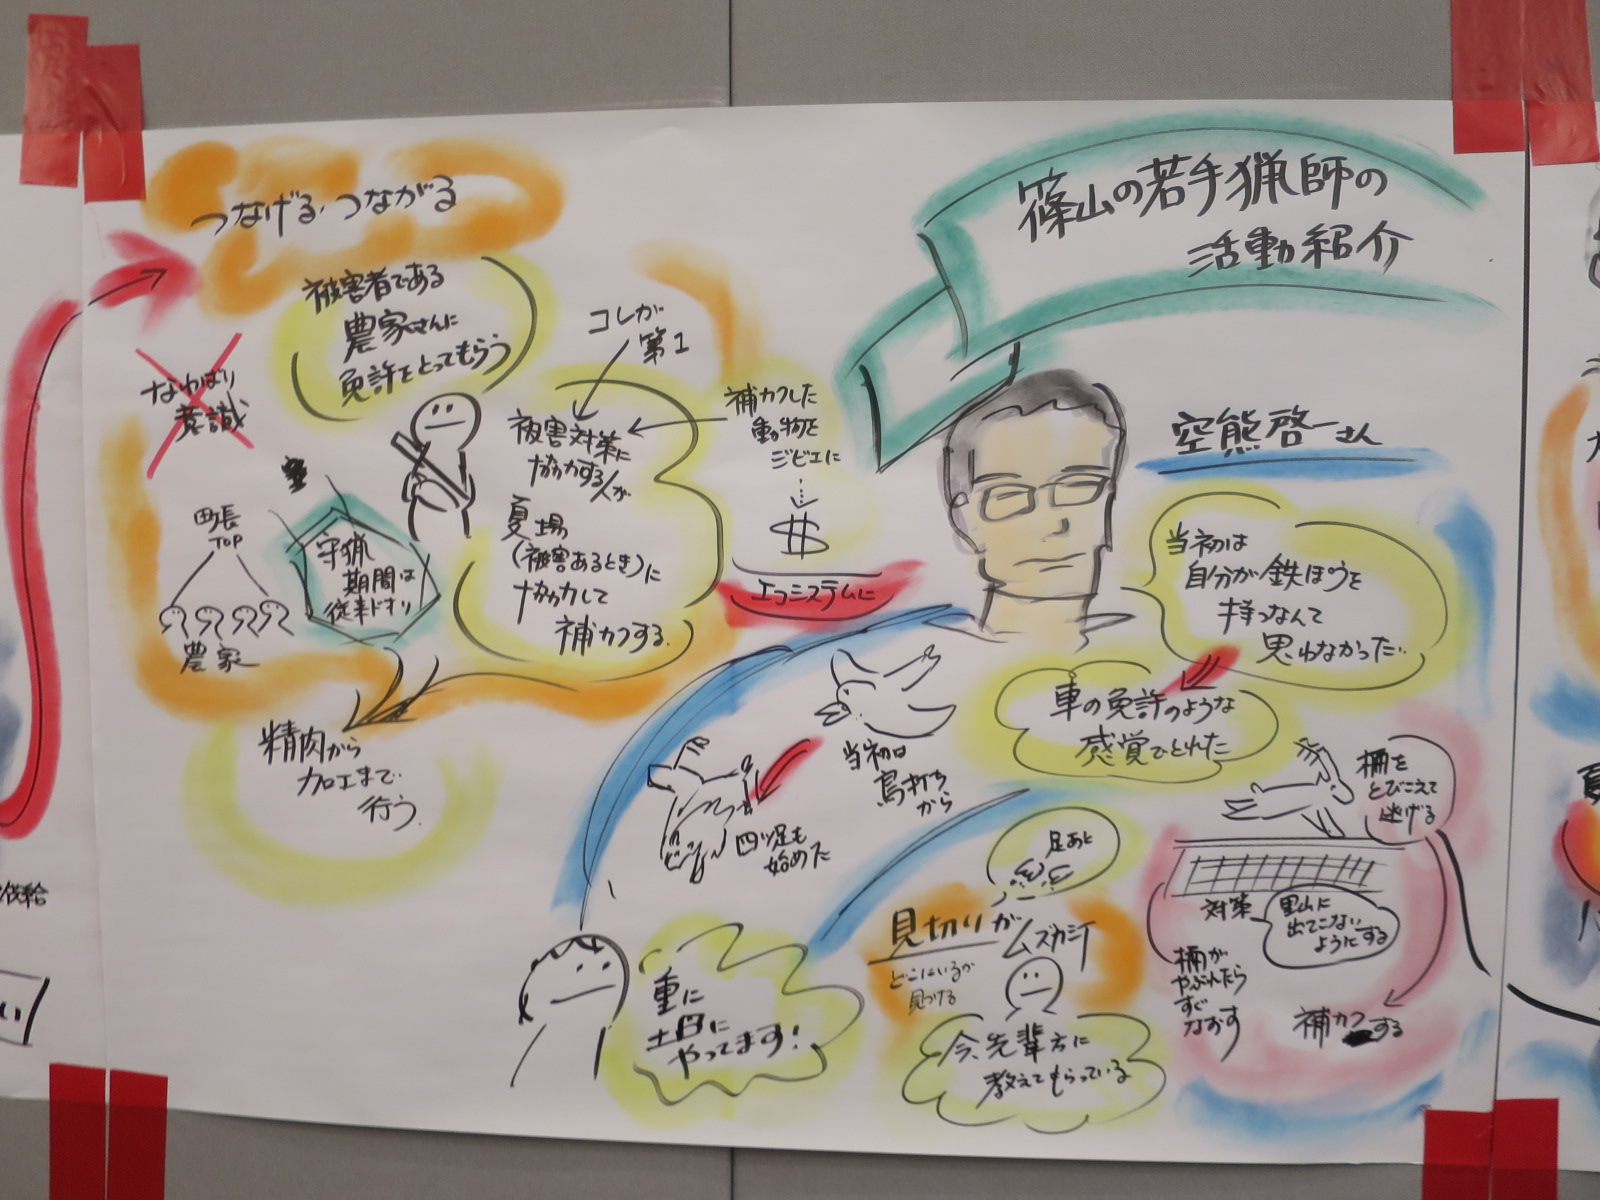 篠山の若手猟師の
活動紹介
空熊啓一さん
当初は
自分が鉄ぽうを
持つなんて
思わなかった..
車の免許のような
感覚でとれた
当初は
鳥打ち
から
四ツ足も
始めた
重に
土日に
やってます!
足あと
見切りがムズカシイ
どこにいるか
見つける
今、先輩方に
教えてもらっている
柵を
とびこえて
逃げる
対策
里山に
出てこない
ようにする
柵が
やぶれたら
すぐ
なおす
補カクする
つなげる・つながる
被害者である
農家さんに
免許をとってもらう
なわばり
意識
コレが
第1
被害対策に
協力する人が
夏場
(被害あるとき)に
協力して
補カクする.
補カクした
動物を
ジビエに
$
エコシステムに
町長
TOP
農家
守猟
期間は
従来ドオリ
精肉から
加工まで.
行う.